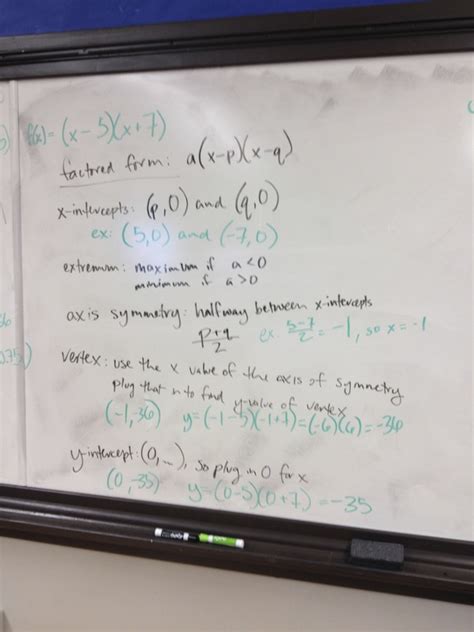 f(x)=(x-5)(x+7)
factored form: a(x-p)(x-q)
x-intercepts: (p,0) and (q,0)
ex: (5,0) and (-7,0)
extremum: maximum if a<0
minimum if a>0
axis symmetry: halfway between x-intercepts
p+q/2 ex. 5-7/2 = -1, so x=-1
vertex: use the x value of the axis of symmetry
plug that in to find y-value of vertex
(-1,36) y=(-1-5)(-1+7)=(-6)(6)=-36
y-intercept: (0,...), so plug in 0 for x
(0,-35) y=(0-5)(0+7)=-35